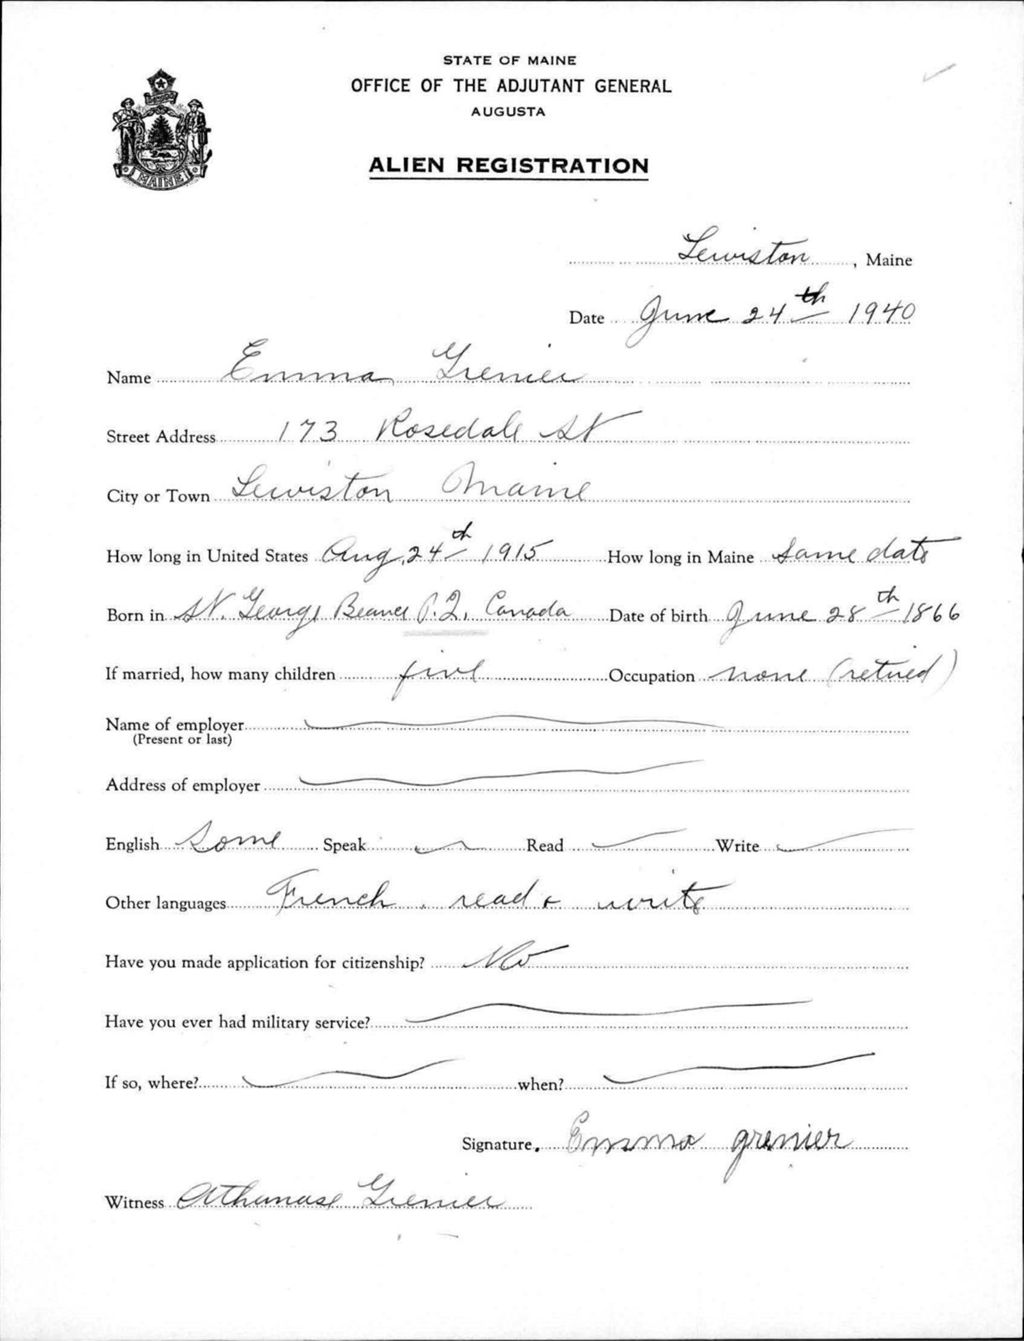 STATE OF MAINE
OFFICE OF THE ADJUTANT GENERAL
AUGUSTA
ALIEN REGISTRATION
MAINE
Lewiston, Maine
Date June 24th 1940
Name Emma Grenier
Street Address 173 Rosedale St
City or Town Lewiston Maine
How long in United States Aug. 24th 1915 How long in Maine Same date
Born in St. George Beauce P.Q. Canada Date of birth June 28th 1866
If married, how many children five Occupation none (retired)
Name of employer
(Present or last)
Address of employer
English Some Speak Read Write
Other languages French. read & write
Have you made application for citizenship? No
Have you ever had military service?
If so, where? when?
Signature. Emma grenier
Witness Athanase Grenier